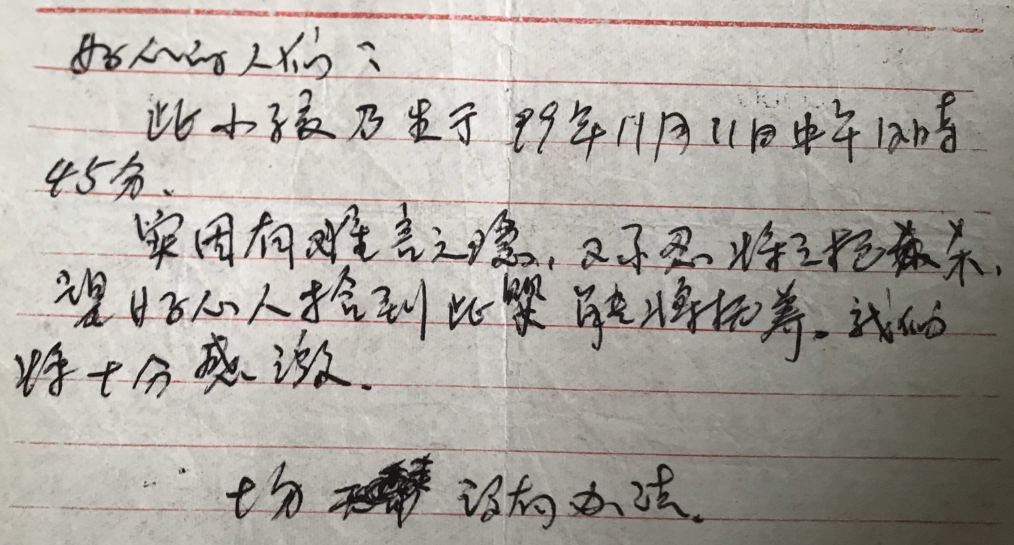 好心的人们：
此小孩乃生于99年11月11日中午12时
45分、
实因有难言之隐，又不忍将之抱杀，
望好心人拾到此婴能将抚养。我们
将十分感激。
十分 没有办法。